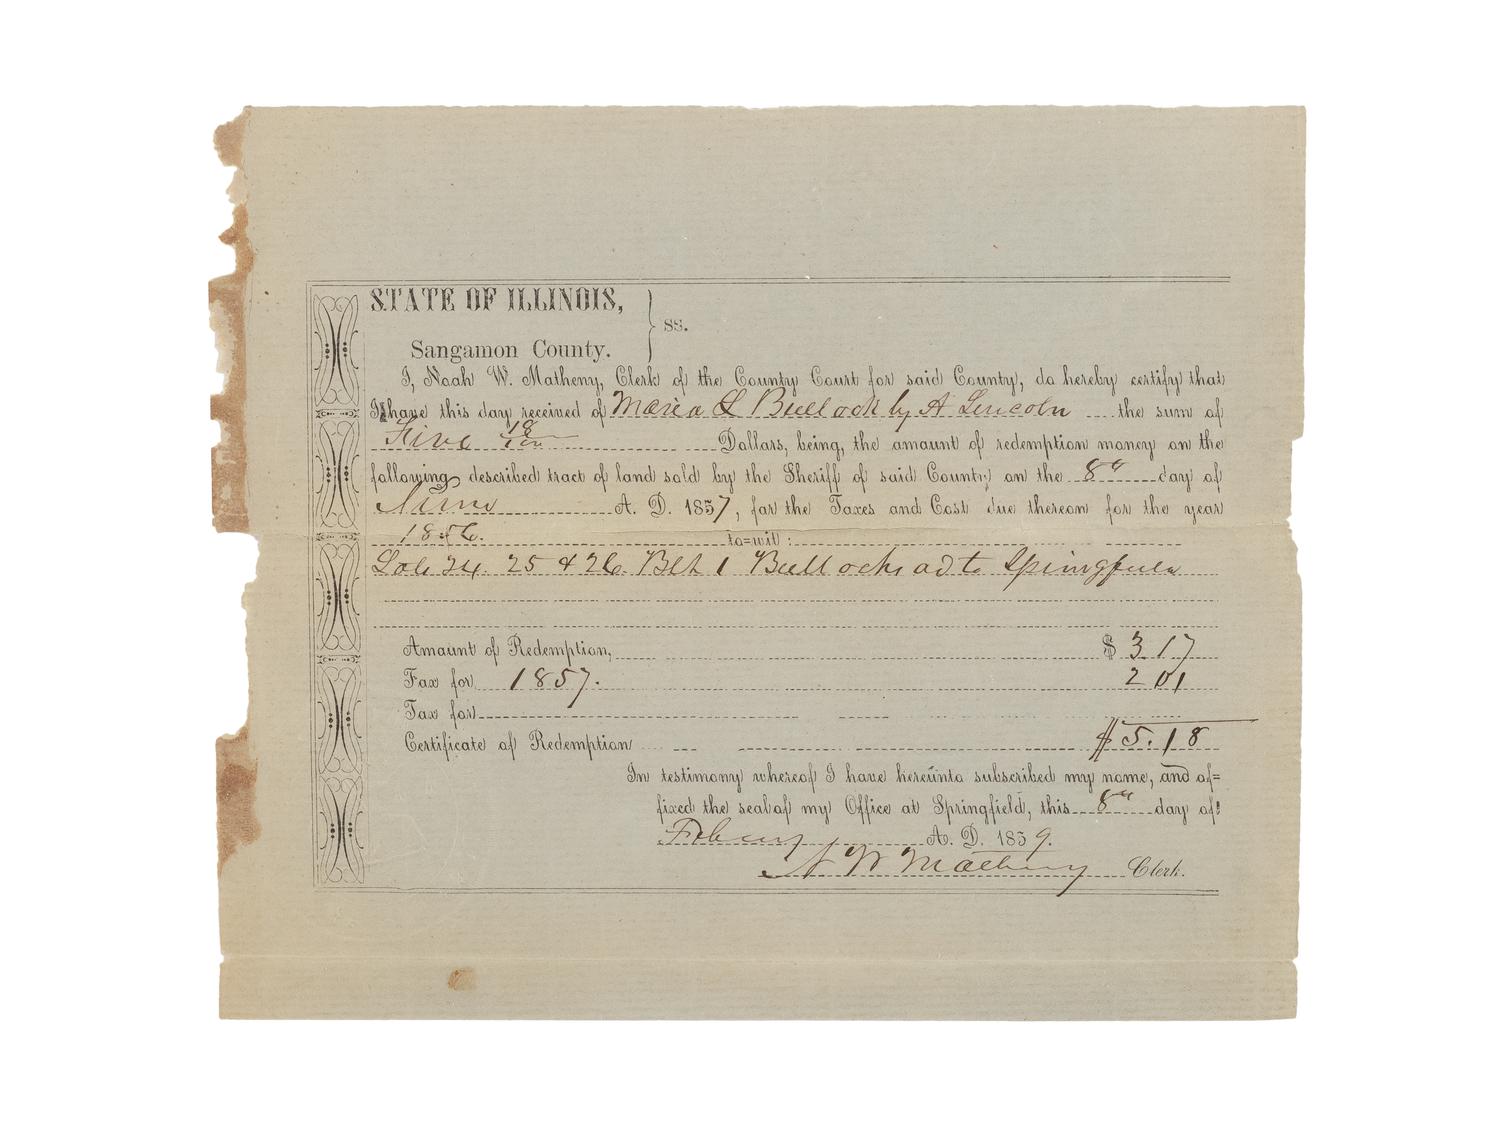 STATE OF ILLINOIS,
ss.
Sangamon County.
I, Noah W. Matheny, Clerk of the County Court for said County, do hereby certify that
I have this day received of Maria L Bullock by A Lincoln the sum of
Five 18/100 Dollars, being, the amount of redemption money on the
following described tract of land sold by the Sheriff of said County on the 8th day of
June A. D. 1857, for the Taxes and Cost due thereon for the year
1856. to=wit:
Lots 24. 25 & 26. Blk 1 Bullocks ad to Springfield
Amount of Redemption, $ 3 17
Tax for 1857. 2 01
Tax for
Certificate of Redemption $5.18
In testimony whereof I have hereunto subscribed my name, and af=
fixed the seal of my Office at Springfield, this 8th day of
Februry A. D. 1859.
N W Matheny Clerk.